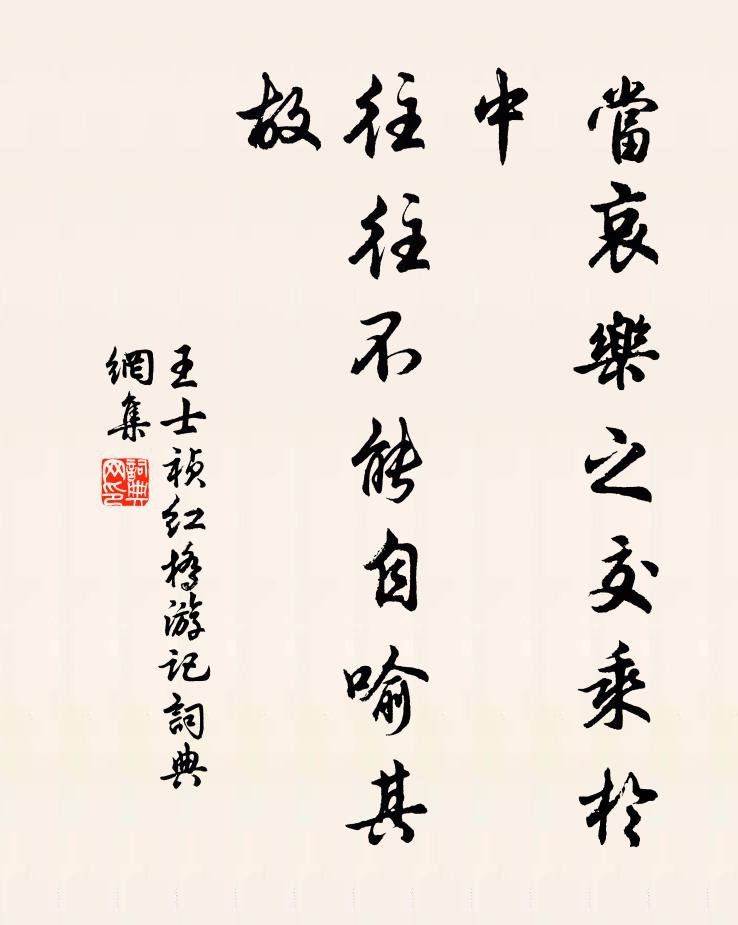 當哀樂之交乘於
中
往往不能自喻其
故
王士禎红橋游记詞典
網集
詞典
网印